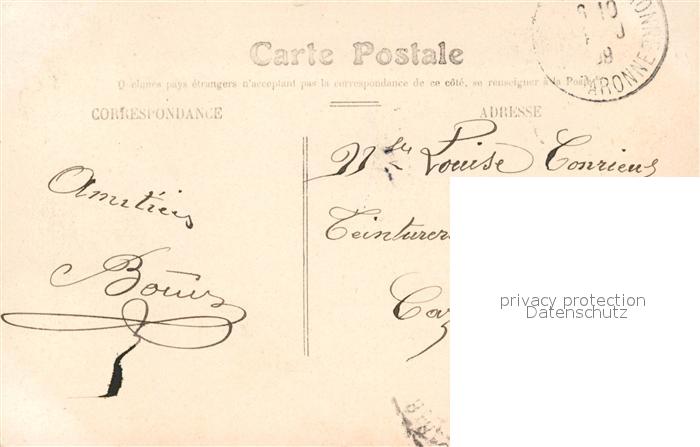 Carte Postale
Quelques pays étrangers n'acceptant pas la correspondance de ce côté, se renseigner à la Poste
CORRESPONDANCE
ADRESSE
Mlle Louise
Amitiés
Teinturer
Caz
privacy protection
Datenschutz
ARONNE